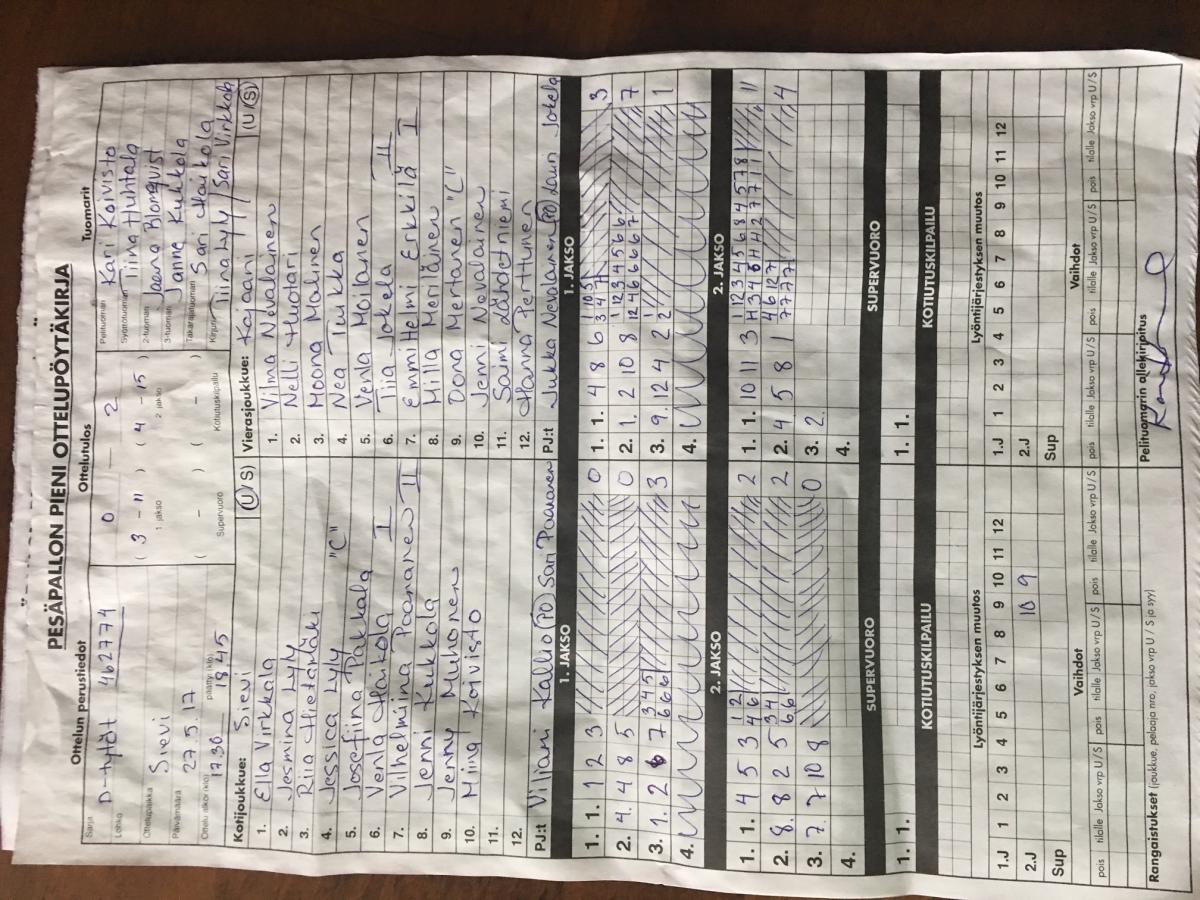 PESÄPALLON PIENI OTTELUPÖYTÄKIRJA
Ottelun perustiedot
Sarja D-tytöt 462774
Lohko
Ottelupaikka Sievi
Päivämäärä 27.5.17
Ottelu alkoi (klo) 17.30 päättyi (klo) 18.45
Ottelutulos
0 — 2
( 3 - 11 ) ( 4 - 15 )
1. jakso 2. jakso
( - ) ( - )
Supervuoro Kotiutuskilpailu
Tuomarit
Pelituomari Kari Koivisto
Syöttötuomari Tiina Huhtala
2-tuomari Jaana Blomqvist
3-tuomari Janne Kukkola
Takarajatuomari Sari Haikola
Kirjuri Tiina Lyly / Sari Virkkala
Kotijoukkue: Sievi (U/S)
1. Ella Virkkala
2. Jesmina Lyly
3. Riia Hietamäki
4. Jessica Lyly "C"
5. Josefiina Pakkala
6. Venla Haikola I
7. Vilhelmiina Paananen II
8. Jenni Kukkola
9. Jenny Muhonen
10. Miina Koivisto
11.
12.
PJ:t Viljami Kallio (PO) Sari Paananen
Vierasjoukkue: Kajaani (U/S)
1. Vilma Nevalainen
2. Nelli Huotari
3. Moona Malinen
4. Nea Tiukka
5. Venla Moilanen
6. Tiia Jokela II
7. Emmi Helmi Erkkilä I
8. Milla Meriläinen
9. Dona Mertanen "C"
10. Jenni Nevalainen
11. Saimi Lähdetniemi
12. Hanna Perttunen
PJ:t Jukka Nevalainen (PO) Jouni Jokela
1. JAKSO
1. 1. 1 2 3 0
2. 4. 4 8 5 0
3. 1. 2 6 7 3 4 5 3
6 6 6
4.
1. JAKSO
1. 1. 4 8 6 1 10 5 3
3 4 7
2. 1. 2 10 8 1 12 3 4 5 6 6 7
12 4 6 6 6 6 7
3. 9. 12 4 2 1 1
2
4.
2. JAKSO
1. 1. 4 5 3 1 2 2
4 6
2. 8. 8 2 5 3 4 2
6 6
3. 7. 7 10 8 0
4.
2. JAKSO
1. 1. 10 11 3 11
2. 4 5 8 1 4 6 12 7 4
7 7 7 7
3. 2.
4.
SUPERVUORO
1. 1.
SUPERVUORO
1. 1.
KOTIUTUSKILPAILU
KOTIUTUSKILPAILU
Lyöntijärjestyksen muutos
1.J 1 2 3 4 5 6 7 8 9 10 11 12
2.J 10 9
Sup
Lyöntijärjestyksen muutos
1.J 1 2 3 4 5 6 7 8 9 10 11 12
2.J
Sup
Vaihdot
pois tilalle Jakso vrp U/S pois tilalle Jakso vrp U/S pois tilalle Jakso vrp U/S
Vaihdot
pois tilalle Jakso vrp U/S pois tilalle Jakso vrp U/S pois tilalle Jakso vrp U/S
Rangaistukset (joukkue, pelaaja nro, jakso vrp U / S ja syy)
Pelituomarin allekirjoitus